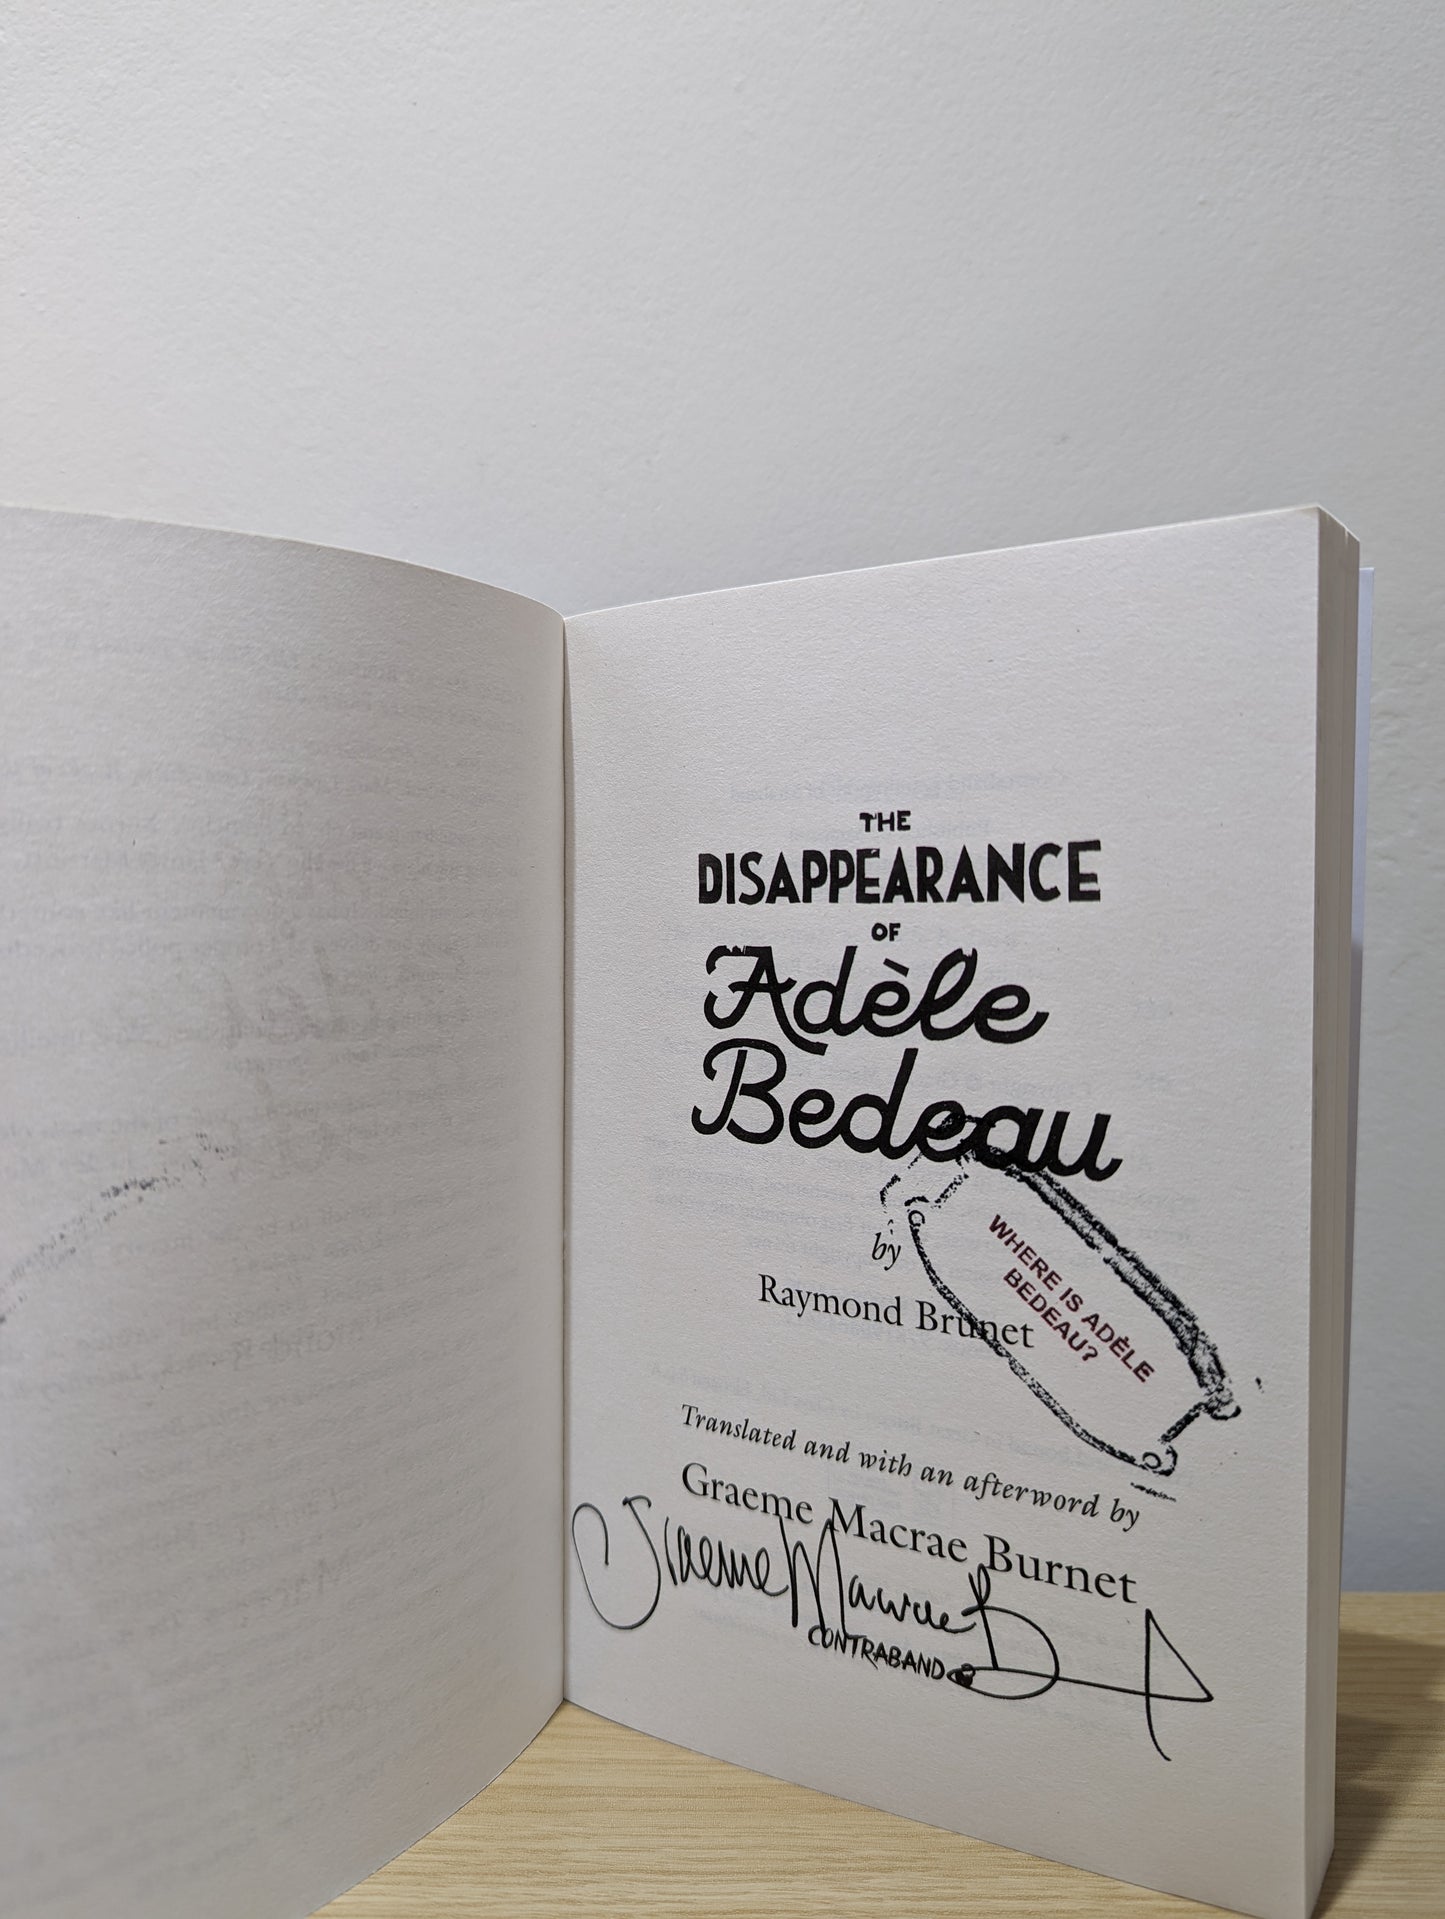 THE
DISAPPEARANCE
OF
Adèle
Bedeau
by
Raymond Brunet
WHERE IS ADÈLE
BEDEAU?
Translated and with an afterword by
Graeme Macrae Burnet
Graeme Macrae B
CONTRABAND